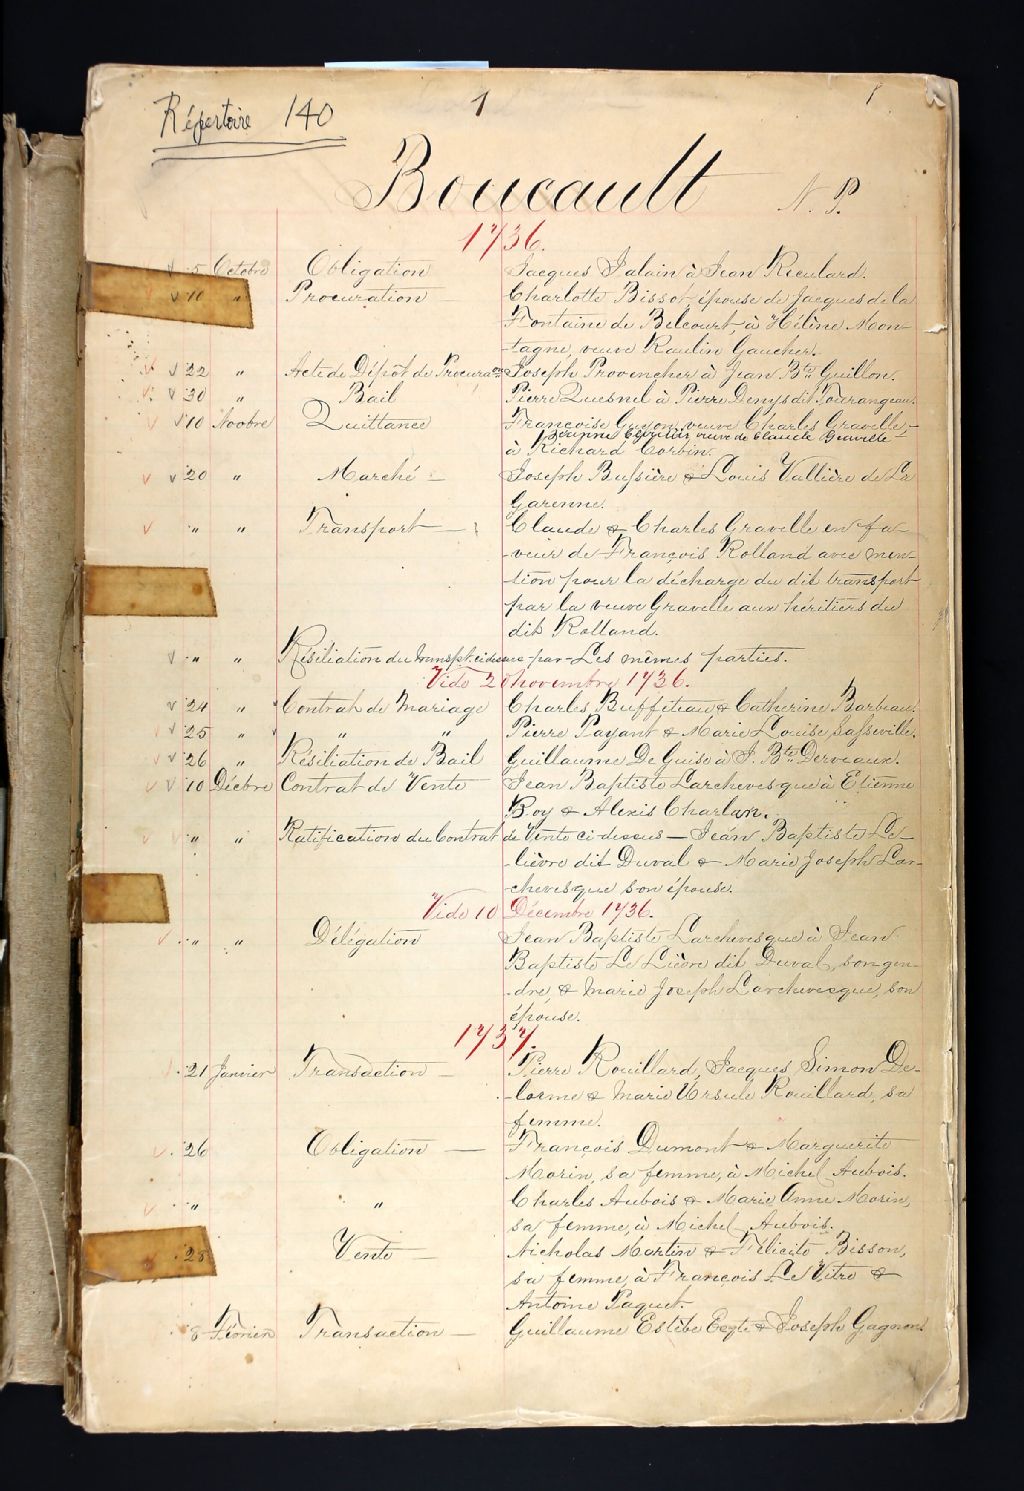 Répertoire 140
1
1
Boucault N. P.
1736.
5 Octobre Obligation Jacques Jalain à Jean Reculard.
10 " Procuration Charlotte Bissot, épouse de Jacques de la
Fontaine de Belcourt, à Hélène Mon-
-tagne, veuve Raulin Gaucher.
22 " Acte de Dépôt de Procuraon Joseph Provencher à Jean Bte Guillon.
30 " Bail Pierre Quesnel à Pierre Denys dit Tourangeau.
10 Novbre Quittance Françoise Guyon, veuve Charles Gravelle,
veuve de Claude
à Richard Corbin.
20 " Marché Joseph Bussière & Louis Vallière de La
Garenne.
" " Transport Claude & Charles Gravelle en fa-
-veur de François Rolland avec men-
-tion pour la décharge du dit transport
par la veuve Gravelle aux héritiers du
dit Rolland.
" " Résiliation du transpt. ci dessus par Les mêmes parties.
Vide 20 novembre 1736.
24 " Contrat de Mariage Charles Buffeteau & Catherine Barbeau.
25 " " " Pierre Payant & Marie Louise Sasseville.
26 " Résiliation de Bail Guillaume De Guise à J. Bte Derveaux.
10 Décbre Contrat de Vente Jean Baptiste Larchevesque à Etienne
Roy & Alexis Charlan.
" " Ratification du Contrat de Vente ci-dessus — Jean Baptiste Le-
-lièvre dit Duval & Marie Joseph Lar-
chevesque son épouse.
Vide 10 Décembre 1736.
" " Délégation Jean Baptiste Larchevesque à Jean
Baptiste Le Lièvre dit Duval, son gen-
-dre, & Marie Joseph Larchevesque, son
épouse.
1737.
21 Janvier Transaction — Pierre Rouillard, Jacques Simon De-
lorme & Marie Ursule Rouillard, sa
femme.
26 Obligation — François Dumont & Marguerite
Morin, sa femme, à Michel Aubois.
" " Charles Aubois & Marie Anne Morin,
sa femme, à Michel Aubois.
28 Vente — Nicholas Martin & Félicité Bisson,
sa femme, à François Le Vitre &
Antoine Paquet.
8 Février Transaction — Guillaume Estèbe Ecyte & Joseph Gagnon